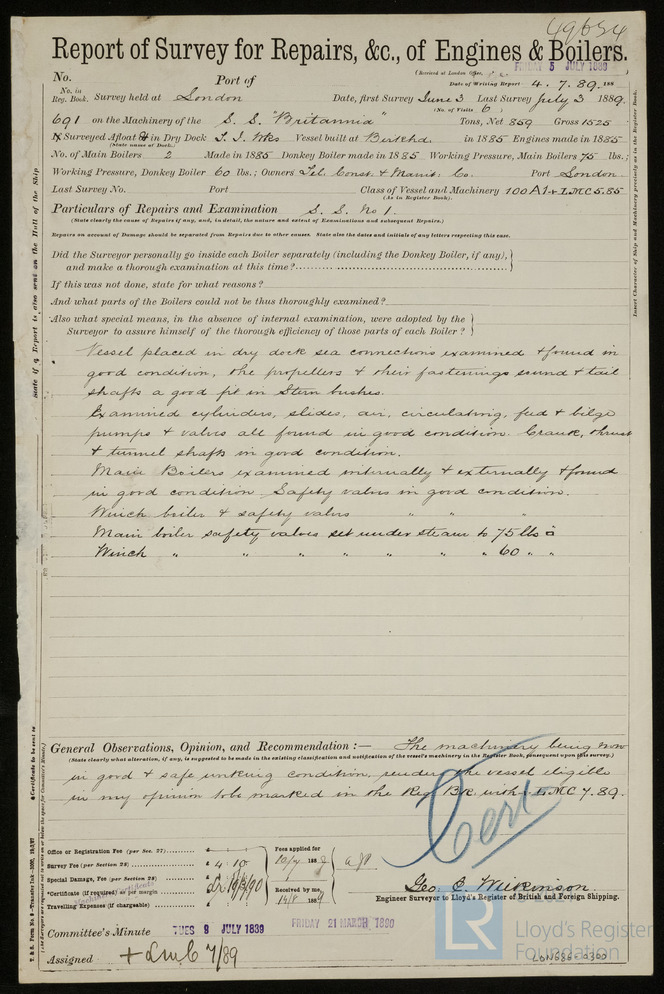 49654
Report of Survey for Repairs, &c., of Engines & Boilers.
(Received at London Office, FRIDAY 5 JULY 1889
No. Port of
Date of Writing Report 4. 7. 89. 188
No. in Reg. Book. Survey held at London Date, first Survey June 3 Last Survey July 3 1889.
(No. of Visits 6)
691 on the Machinery of the S. S. "Britannia" Tons, Net 859 Gross 1525
Surveyed Afloat & in Dry Dock T. I. Wks Vessel built at Birkhd. in 1885 Engines made in 1885
(State name of Dock.)
No. of Main Boilers 2 Made in 1885 Donkey Boiler made in 1885 Working Pressure, Main Boilers 75 lbs.;
Working Pressure, Donkey Boiler 60 lbs.; Owners Tel. Const. & Maint. Co. Port London
Last Survey No. Port Class of Vessel and Machinery 100A1 + LMC 5.85
(As in Register Book).
Particulars of Repairs and Examination S. S. No 1.
(State clearly the cause of Repairs if any; and, in detail, the nature and extent of Examinations and subsequent Repairs.)
Repairs on account of Damage should be separated from Repairs due to other causes. State also the dates and initials of any letters respecting this case.
Did the Surveyor personally go inside each Boiler separately (including the Donkey Boiler, if any),
and make a thorough examination at this time?
If this was not done, state for what reasons?
And what parts of the Boilers could not be thus thoroughly examined?
Also what special means, in the absence of internal examination, were adopted by the
Surveyor to assure himself of the thorough efficiency of those parts of each Boiler?
Vessel placed in dry dock sea connections examined & found in
good condition, the propellers & their fastenings sound & tail
shafts a good fit in Stern bushes.
Examined cylinders, slides, air, circulating, feed & bilge
pumps & valves all found in good condition. Crank, thrust
& tunnel shafts in good condition.
Main Boilers examined internally & externally & found
in good condition Safety valves in good condition.
Winch boiler & safety valves " " "
Main boiler safety valves set under steam to 75 lbs
Winch " " " " " " 60 " "
General Observations, Opinion, and Recommendation:— The machinery being now
(State clearly what alteration, if any, is suggested to be made in the existing classification and notification of the vessel's machinery in the Register Book, consequent upon this survey.)
in good & safe working condition, renders the vessel eligible
in my opinion to be marked in the Reg. Bk. with + LMC 7.89.
Cert
Office or Registration Fee (per Sec. 27)
Survey Fee (per Section 28) £ 4 10
Special Damage Fee (per Section 28) £
Certificate (if required) as per margin
Travelling Expenses (if chargeable) £
Fees applied for
10/7 1889
Received by me,
14/8 1889
Geo. C. Wilkinson.
Engineer Surveyor to Lloyd's Register of British and Foreign Shipping.
Committee's Minute TUES 9 JULY 1889 FRIDAY 21 MARCH 1890
Assigned + LMC 7/89
LR
Lloyd's Register
Foundation
LON686-0300
State if a Report is also sent on the Hull of the Ship
Certificate to be sent to
Insert Character of Ship and Machinery precisely as in the Register Book.